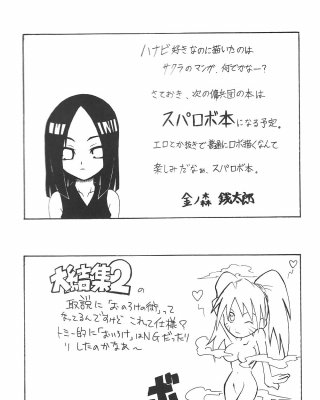 ハナビ好きなのに描いたのは
サクラのマンガ。何でかなー?
さておき、次の傭兵団の本は
スパロボ本になる予定。
エロとか抜きで普通にロボ描くなんて
楽しみだなぁ、スパロボ本。
金ノ森 銭太郎
大結集2の
取説に「おいろけの術」って
てるんですけど これって仕様?
トミー的に「おいろけ」はNGだったり
りしたのかなあ〜
ボ